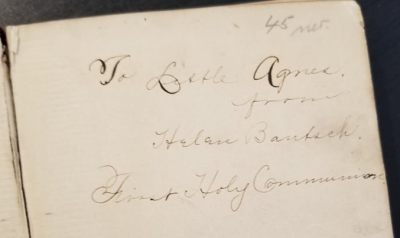 45 net.
To Little Agnes.
from
Helen Bautsch.
First Holy Communion.